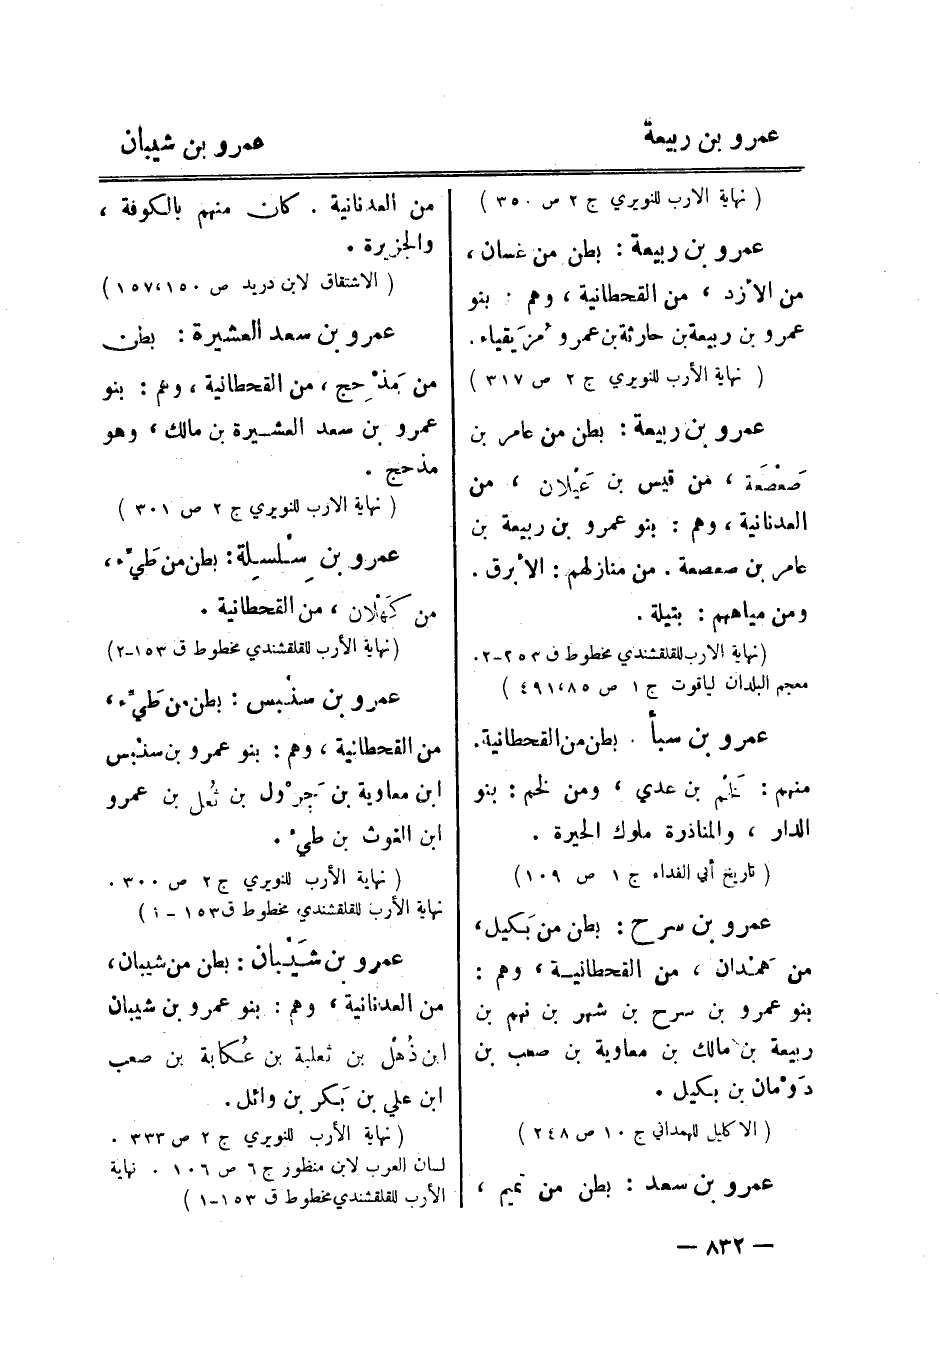 عمرو بن ربيعة
عمرو بن شيبان
( نهاية الارب للنويري ج ٢ ص ٣٥٠ )
عمرو بن ربيعة : بطن من غسان ،
من الأزد ، من القحطانية ، وهم : بنو
عمرو بن ربيعة بن حارثة بن عمرو مُزَيقياء .
( نهاية الأرب للنويري ج ٢ ص ٣١٧ )
عمرو بن ربيعة : بطن من عامر بن
صَعْصَعَة ، من قيس بن عَيْلان ، من
العدنانية ، وهم : بنو عمرو بن ربيعة بن
عامر بن صعصعة . من منازلهم : الأبرق .
ومن مياههم : بتيلة .
(نهاية الارب للقلقشندي مخطوط ق ١٥٣-٢.
معجم البلدان لياقوت ج ١ ص ٤٩١،٨٥ )
عمرو بن سبأ . بطن من القحطانية .
منهم : لَخْم بن عدي ، ومن لخم : بنو
الدار ، والمناذرة ملوك الحيرة .
( تاريخ أبي الفداء ج ١ ص ١٠٩ )
عمرو بن سرح : بطن من بَكيل ،
من هَمْدان ، من القحطانية ، وهم :
بنو عمرو بن سرح بن شهر بن نهم بن
ربيعة بن مالك بن معاوية بن صعب بن
دَوْمان بن بكيل .
( الاكليل للهمداني ج ١٠ ص ٢٤٨ )
عمرو بن سعد : بطن من تميم ،
من العدنانية . كان منهم بالكوفة ،
والجزيرة .
( الاشتقاق لابن دريد ص ١٥٧،١٥٠ )
عمرو بن سعد العشيرة : بطن
من مَذْحِج ، من القحطانية ، وهم : بنو
عمرو بن سعد العشيرة بن مالك ، وهو
مذحج .
( نهاية الارب للنويري ج ٢ ص ٣٠١ )
عمرو بن سِلْسِلة : بطن من طَيّء ،
من كَهْلان ، من القحطانية .
(نهاية الأرب للقلقشندي مخطوط ق ١٥٣-٢)
عمرو بن سنْبس : بطن من طَيّء ،
من القحطانية ، وهم : بنو عمرو بن سنْبس
ابن معاوية بن جَرْول بن ثُعل بن عمرو
ابن الغوث بن طيء .
( نهاية الأرب للنويري ج ٢ ص ٣٠٠ .
نهاية الأرب للقلقشندي مخطوط ق ١٥٣ – ١ )
عمرو بن شَيْبان : بطن من شيبان ،
من العدنانية ، وهم : بنو عمرو بن شيبان
ابن ذُهْل بن ثعلبة بن عُكابة بن صعب
ابن علي بن بَكر بن وائل .
( نهاية الأرب للنويري ج ٢ ص ٣٣٣ .
لسان العرب لابن منظور ج ٦ ص ١٠٦ . نهاية
الأرب للقلقشندي مخطوط ق ١٥٣-١ )
— ٨٣٢ —